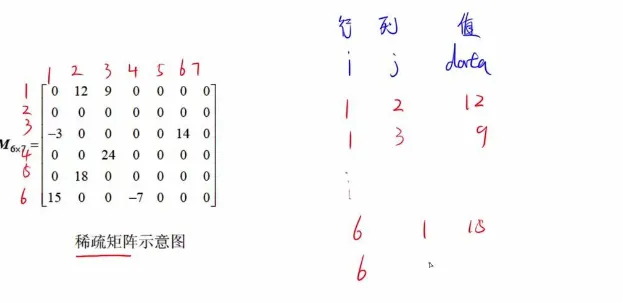 1 2 3 4 5 6 7
1 0 12 9 0 0 0 0
2 0 0 0 0 0 0 0
3 -3 0 0 0 0 14 0
M6×7=
4 0 0 24 0 0 0 0
5 0 18 0 0 0 0 0
6 15 0 0 -7 0 0 0
稀疏矩阵示意图
行 列 值
i j data
1 2 12
1 3 9
⋮
6 1 15
6